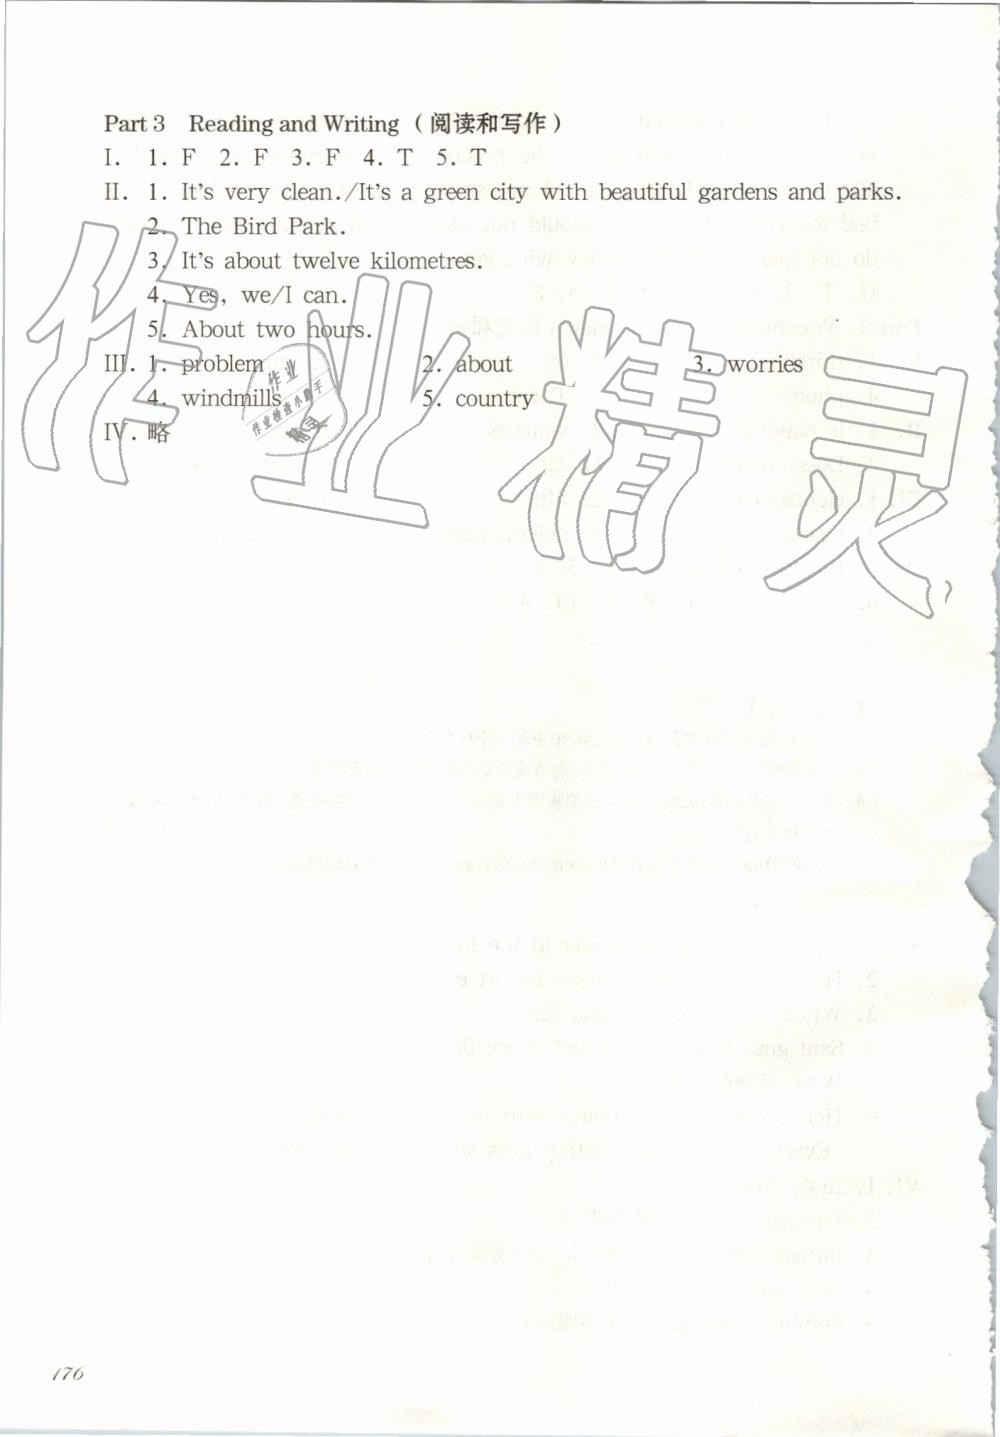 Part 3 Reading and Writing（阅读和写作）
I. 1. F 2. F 3. F 4. T 5. T
II. 1. It's very clean./It's a green city with beautiful gardens and parks.
2. The Bird Park.
3. It's about twelve kilometres.
4. Yes, we/I can.
5. About two hours.
III. 1. problem 2. about 3. worries
4. windmills 5. country
IV. 略
作业精灵
作业
作业检查小助手
精灵
176